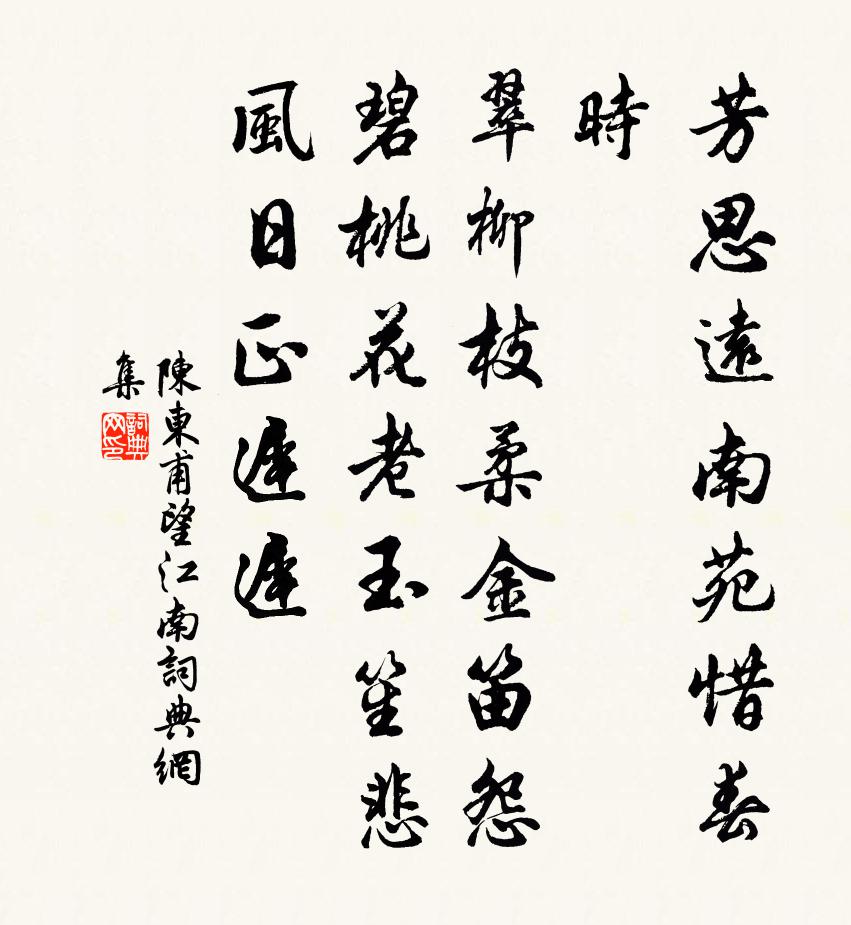 芳思遠南苑惜春
時
翠柳枝柔金笛怨
碧桃花老玉笙悲
風日正遲遲
陳東甫望江南詞典網
集
詞典
网印